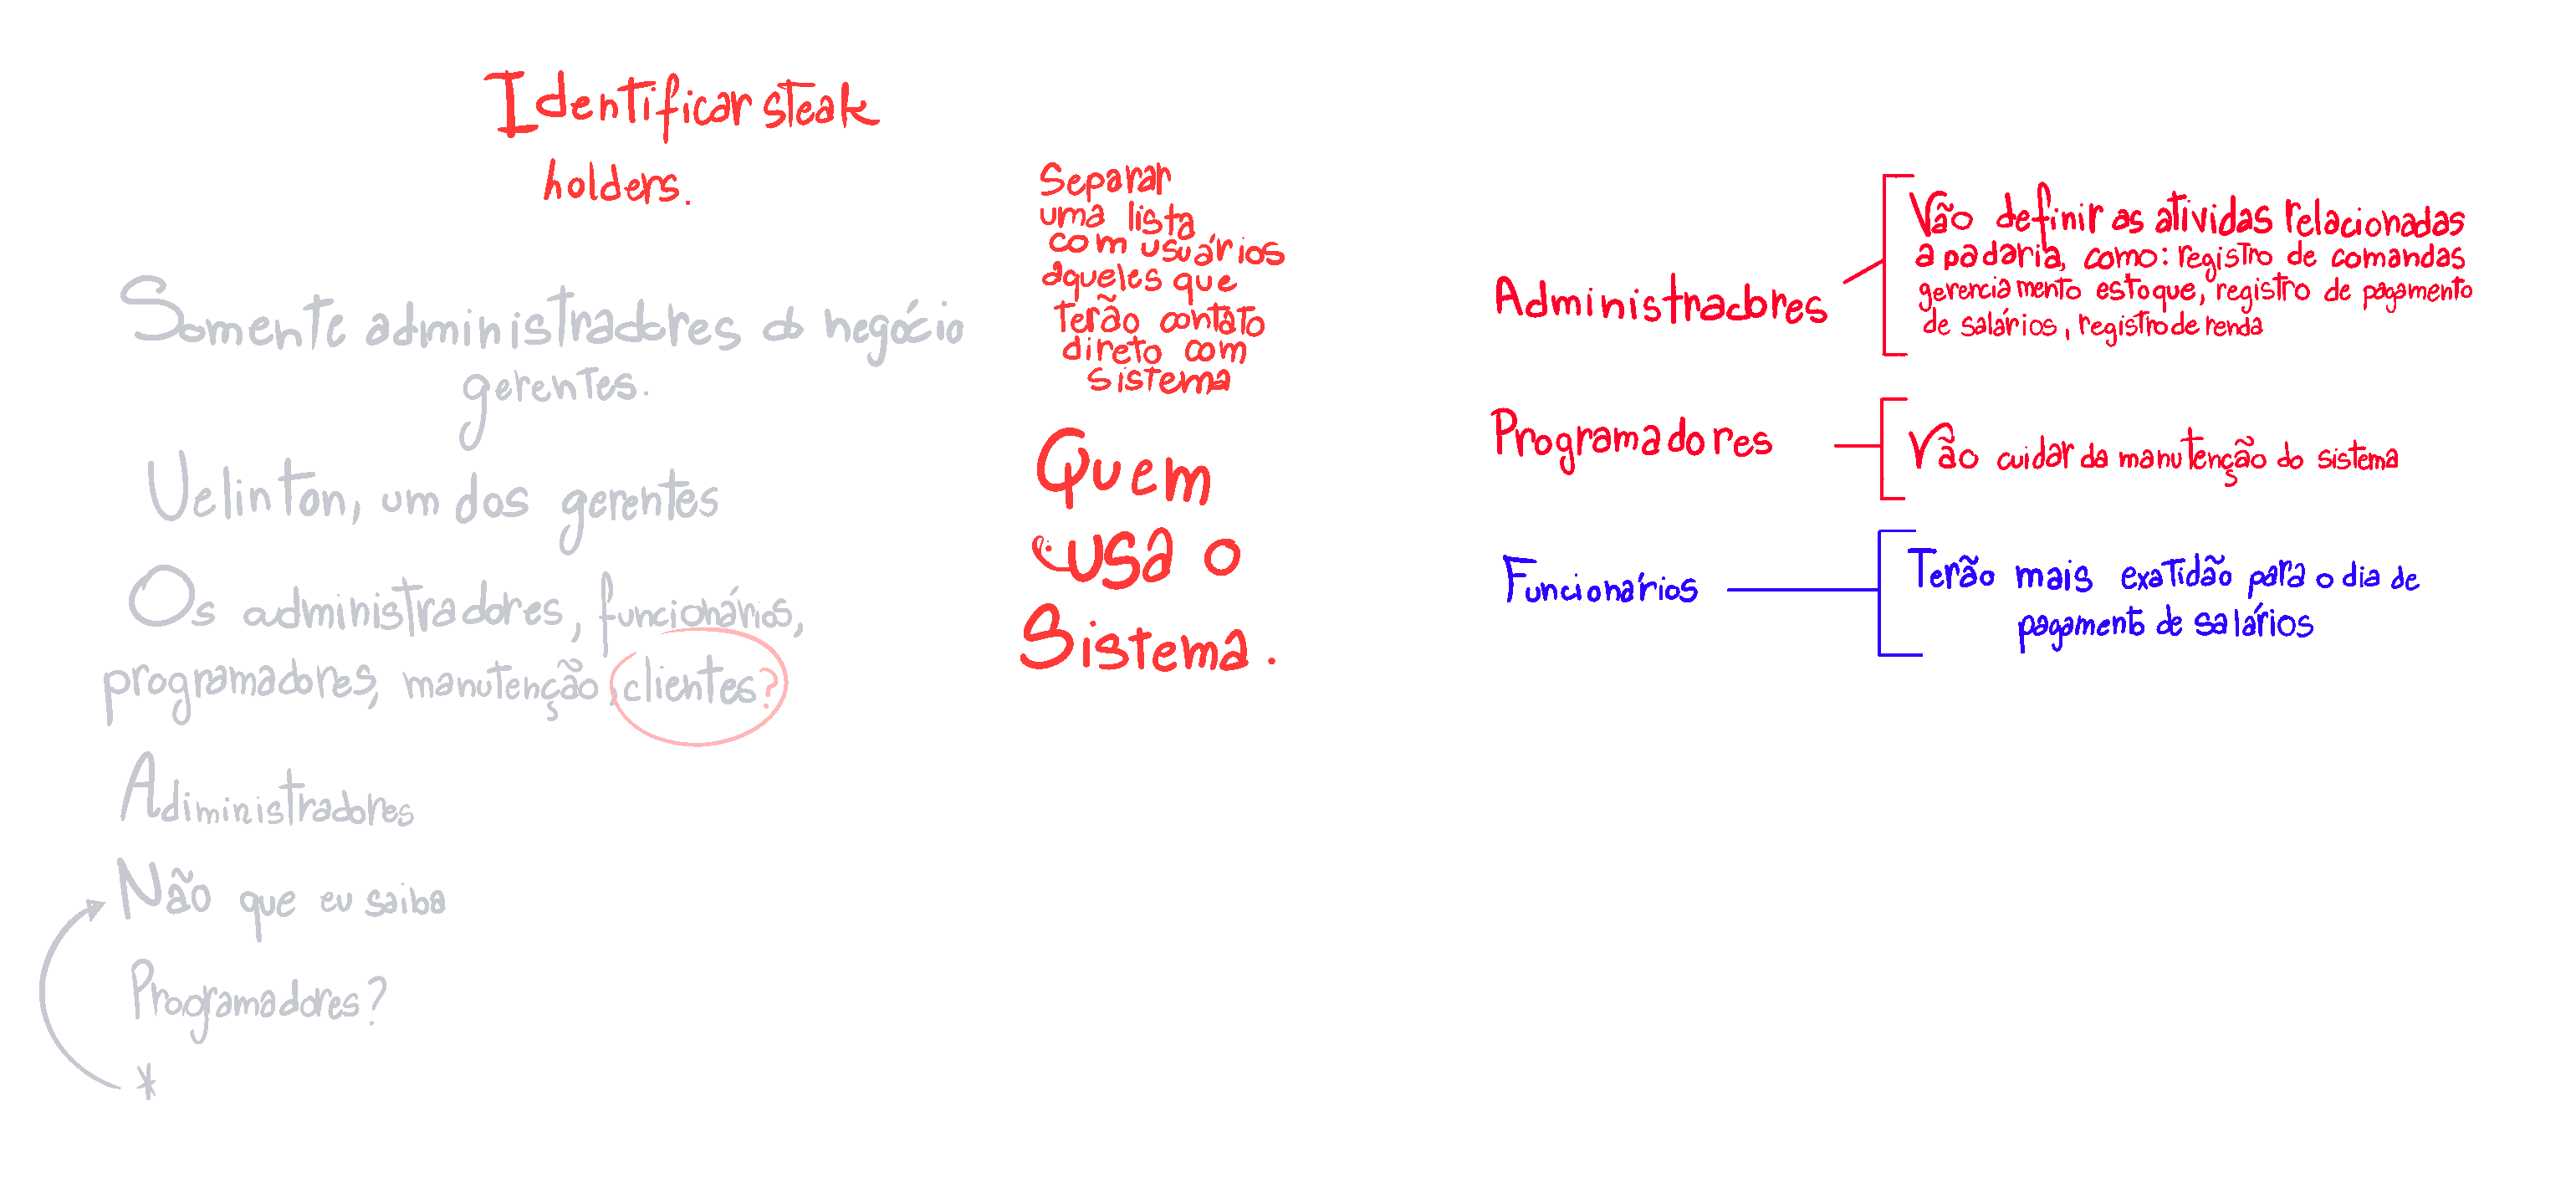 Identificar steak
holders.
Somente administradores do negócio
gerentes.
Uelinton, um dos gerentes
Os administradores, funcionários,
programadores, manutenção, clientes?
Adiministradores
Não que eu saiba
Programadores?
*
Separar
uma lista
com usuários
aqueles que
terão contato
direto com
sistema
Quem
usa o
Sistema.
Administradores
Vão definir as atividas relacionadas
a padaria, como: registro de comandas
gerenciamento estoque, registro de pagamento
de salários, registro de renda
Programadores
Vão cuidar da manutenção do sistema
Funcionários
Terão mais exatidão para o dia de
pagamento de salários